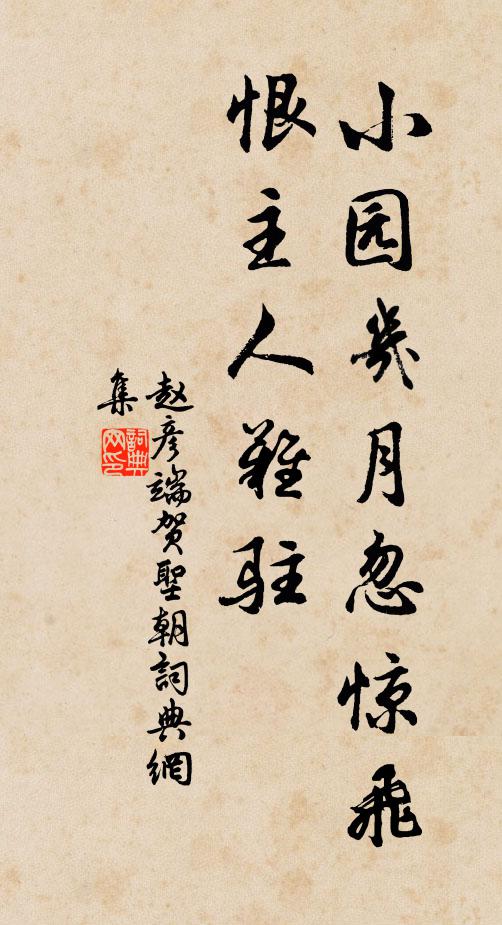 小园幾月忽惊飛
恨主人難驻
赵彦端贺聖朝詞典網
集
詞典网印